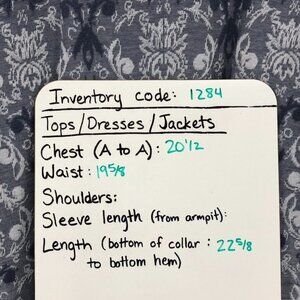 Inventory code: 1284
Tops/Dresses/Jackets
Chest (A to A): 20 1/2
Waist: 19 5/8
Shoulders:
Sleeve length (from armpit):
Length (bottom of collar : 22 5/8
to bottom hem)